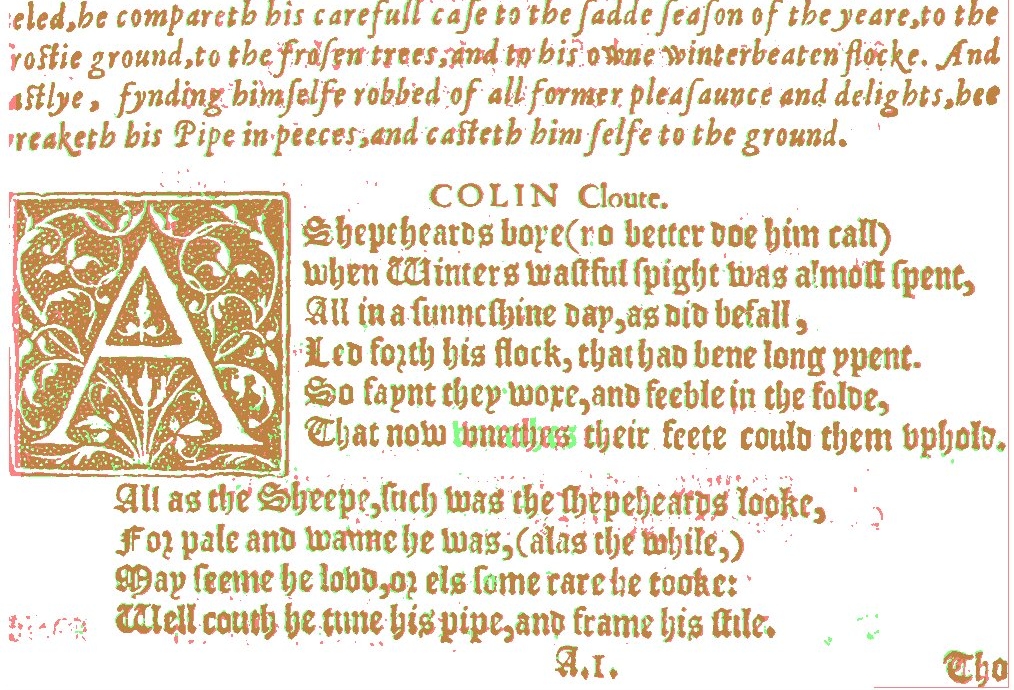 eled,he compareth his carefull caſe to the ſadde ſeaſon of the yeare,to the
roſtie ground,to the froſen trees,and to his owne winterbeaten flocke. And
aſtlye, fynding himſelfe robbed of all former pleaſaunce and delights,hee
reaketh his Pipe in peeces,and caſteth him ſelfe to the ground.
COLIN Cloute.
A Shepeheards boye(no better doe him call)
when Winters waſtful ſpight was almoſt ſpent,
All in a ſunneſhine day,as did befall,
Led foꝛth his flock, that had bene long ypent.
So faynt they woxe,and feeble in the folde,
That now their feete could them vphold.
All as the Sheepe,ſuch was the ſhepeheards looke,
Foꝛ pale and wanne he was,(alas the while,)
May ſeeme he lovd,oꝛ els ſome care he tooke:
Well couth he tune his pipe,and frame his ſtile.
A.i.
Tho